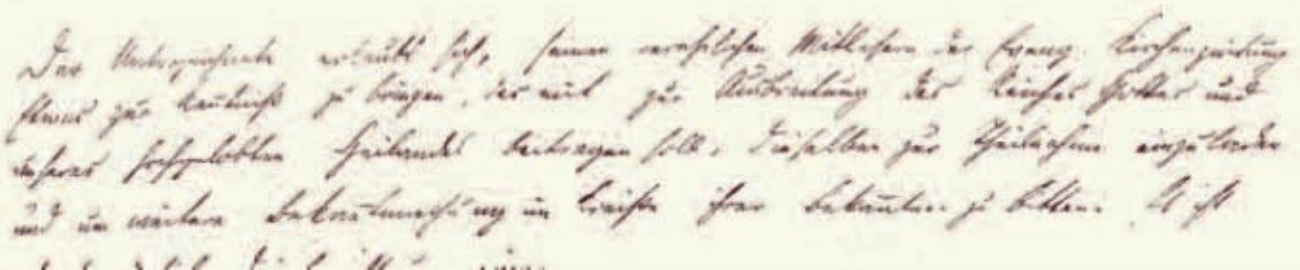 Der Unterzeichnete erlaubt sich, seinen verehrlichen Mitlesern der Evang. Kirchenzeitung
Etwas zur Kenntniß zu bringen, das mit zur Ausbreitung des Reiches Gottes und
unseres hochgelobten Heilandes beitragen soll, dieselben zur Theilnahme einzuladen
und um weitere Bekanntmachung im Kreise ihrer Bekannten zu bitten. Es ist